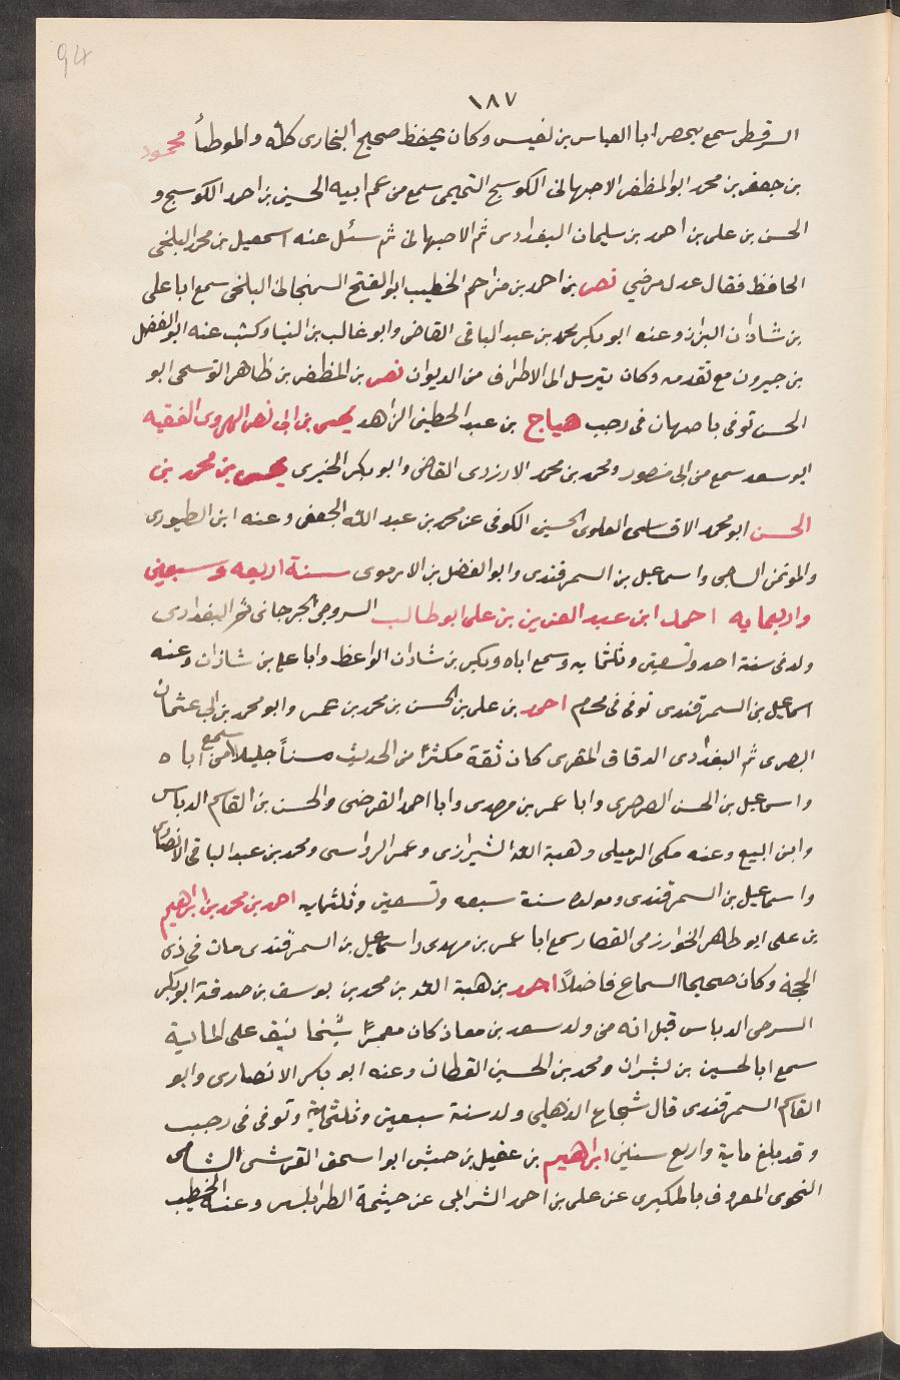 94
١٨٧
السرقطى سمع بمصر ابا العباس بن نفيس وكان يحفظ صحيح البخارى كله والموطأ محمود
بن جعفر بن محمد ابو المظفر الاصبهانى الكوسج التميمى سمع من عم ابيه الحسين بن احمد الكوسج و
الحسن بن على بن احمد بن سليمان البغدادى ثم الاصبهانى ثم سئل عنه اسمعيل بن محمد البلخى
الحافظ فقال عدل مرضي نصر بن احمد بن مزاحم الخطيب ابو الفتح السمنجانى البلخى سمع ابا على
بن شاذان البزاز وعنه ابو بكر محمد بن عبد الباقى القاضى وابو غالب بن البنا وكتب عنه ابو الفضل
بن خيرون مع تقدمه وكان يترسل الى الاطراف من الديوان نصر بن المظفر بن طاهر ابو
الحسن توفى باصبهان فى رجب هياج بن عبد الحطينى الزاهد يحيى بن ابى نصر الهروى الفقيه
ابو سعد سمع من ابى منصور ومحمد بن محمد الازدى القاضى وابو بكر الحيرى يحيى بن محمد بن
الحسن ابو محمد الاقساسى العلوى الحسينى الكوفى عن محمد بن عبد الله الجعفى وعنه ابن الطيورى
والموتمن الساجى واسماعيل بن السمرقندى وابو الفضل بن الارموى سنة اربعه وسبعين
واربعمايه احمد ابن عبد العزيز بن على ابو طالب السروجى الجرجانى ثم البغدادى
ولد فى سنة احد وتسعين وثلثمايه وسمع اباه وبكر بن شاذان الواعظ وابا على بن شاذان وعنه
اسماعيل بن السمرقندى توفى فى محرم احمد بن على بن الحسن بن محمد بن عمر وابو محمد بن ابى عثمان
البصرى ثم البغدادى الدقاق المقرى كان ثقة مكثرا من الحديث مسناً جليلا سمع من اباه
واسماعيل بن الحسن الصرصرى وابا عمر بن مهدى وابا احمد الفرضى والحسن بن القاسم الدباس
وابن البيع وعنه مكى الرميلى وهبة الله الشيرازى وعمر الرواسى ومحمد بن عبد الباقى الانصارى
واسماعيل بن السمرقندى ومولده سنة سبعه وتسعين وثلثمايه احمد بن محمد بن ابراهيم
بن على ابو طاهر الخوارزمى القصار سمع ابا عمر بن مهدى واسماعيل بن السمرقندى مات فى ذى
الحجة وكان صحيحا السماع فاضلاً احمد بن هبة الله بن محمد بن يوسف بن صدقة ابو بكر
الرحبى الدباس قيل انه من ولد سعد بن معاذ كان معمراً شيخا نيف على الماية
سمع ابا لحسين بن بشران ومحمد بن الحسين القطان وعنه ابو بكر الانصارى وابو
القاسم السمرقندى قال شجاع الذهلى ولد سنة سبعين وثلثماية وتوفى فى رجب
وقد بلغ ماية واربع سنين ابراهيم بن عقيل بن حبش ابو اسحق القرشى الشامى
النحوى المعروف بالمكبرى عن على بن احمد الشرابى عن خيثمة الطرابلسى وعنه الخطيب